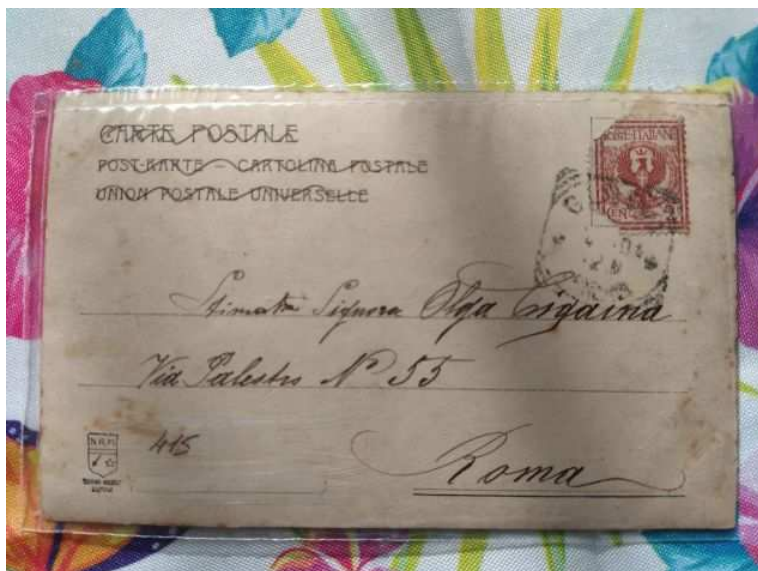 CARTE POSTALE
POST-KARTE - CARTOLINA POSTALE
UNION POSTALE UNIVERSELLE
Stimata Signora Olga Cigaina
Via Palestro Nº 55
415
Roma
N.R.M.